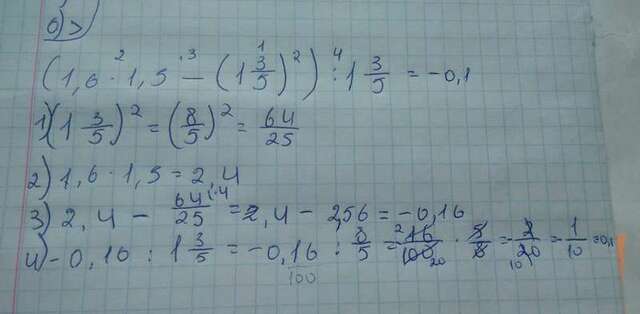 б)>
(1,6 · 1,5 − (1 3/5)²) : 1 3/5 = −0,1
1) (1 3/5)² = (8/5)² = 64/25
2) 1,6 · 1,5 = 2,4
3) 2,4 − 64/25 = 2,4 − 2,56 = −0,16
4) −0,16 : 1 3/5 = −0,16 : 8/5 = 16/100 · 5/8 = 2/20 = 1/10 = 0,1